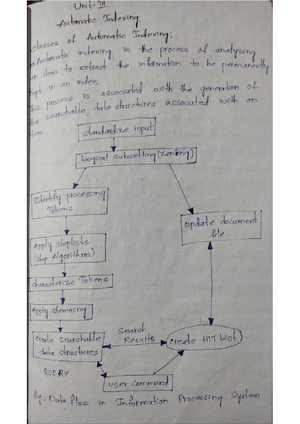 Unit-III
Automatic Indexing
Classes of Automatic Indexing:
Automatic indexing is the process of analyzing
an item to extract the information to be permanently
kept in an index.
This process is associated with the generation of
the searchable data structures associated with an
item.
Standardize input
Logical subsetting (Zoning)
Identify processing
Tokens
update document
file
Apply stoplists
(stop Algorithms)
characterize Tokens
Apply stemming
Search
Results
create searchable
data structures
create HIT List
QUERY
user command
fig: Data flow in Information Processing System